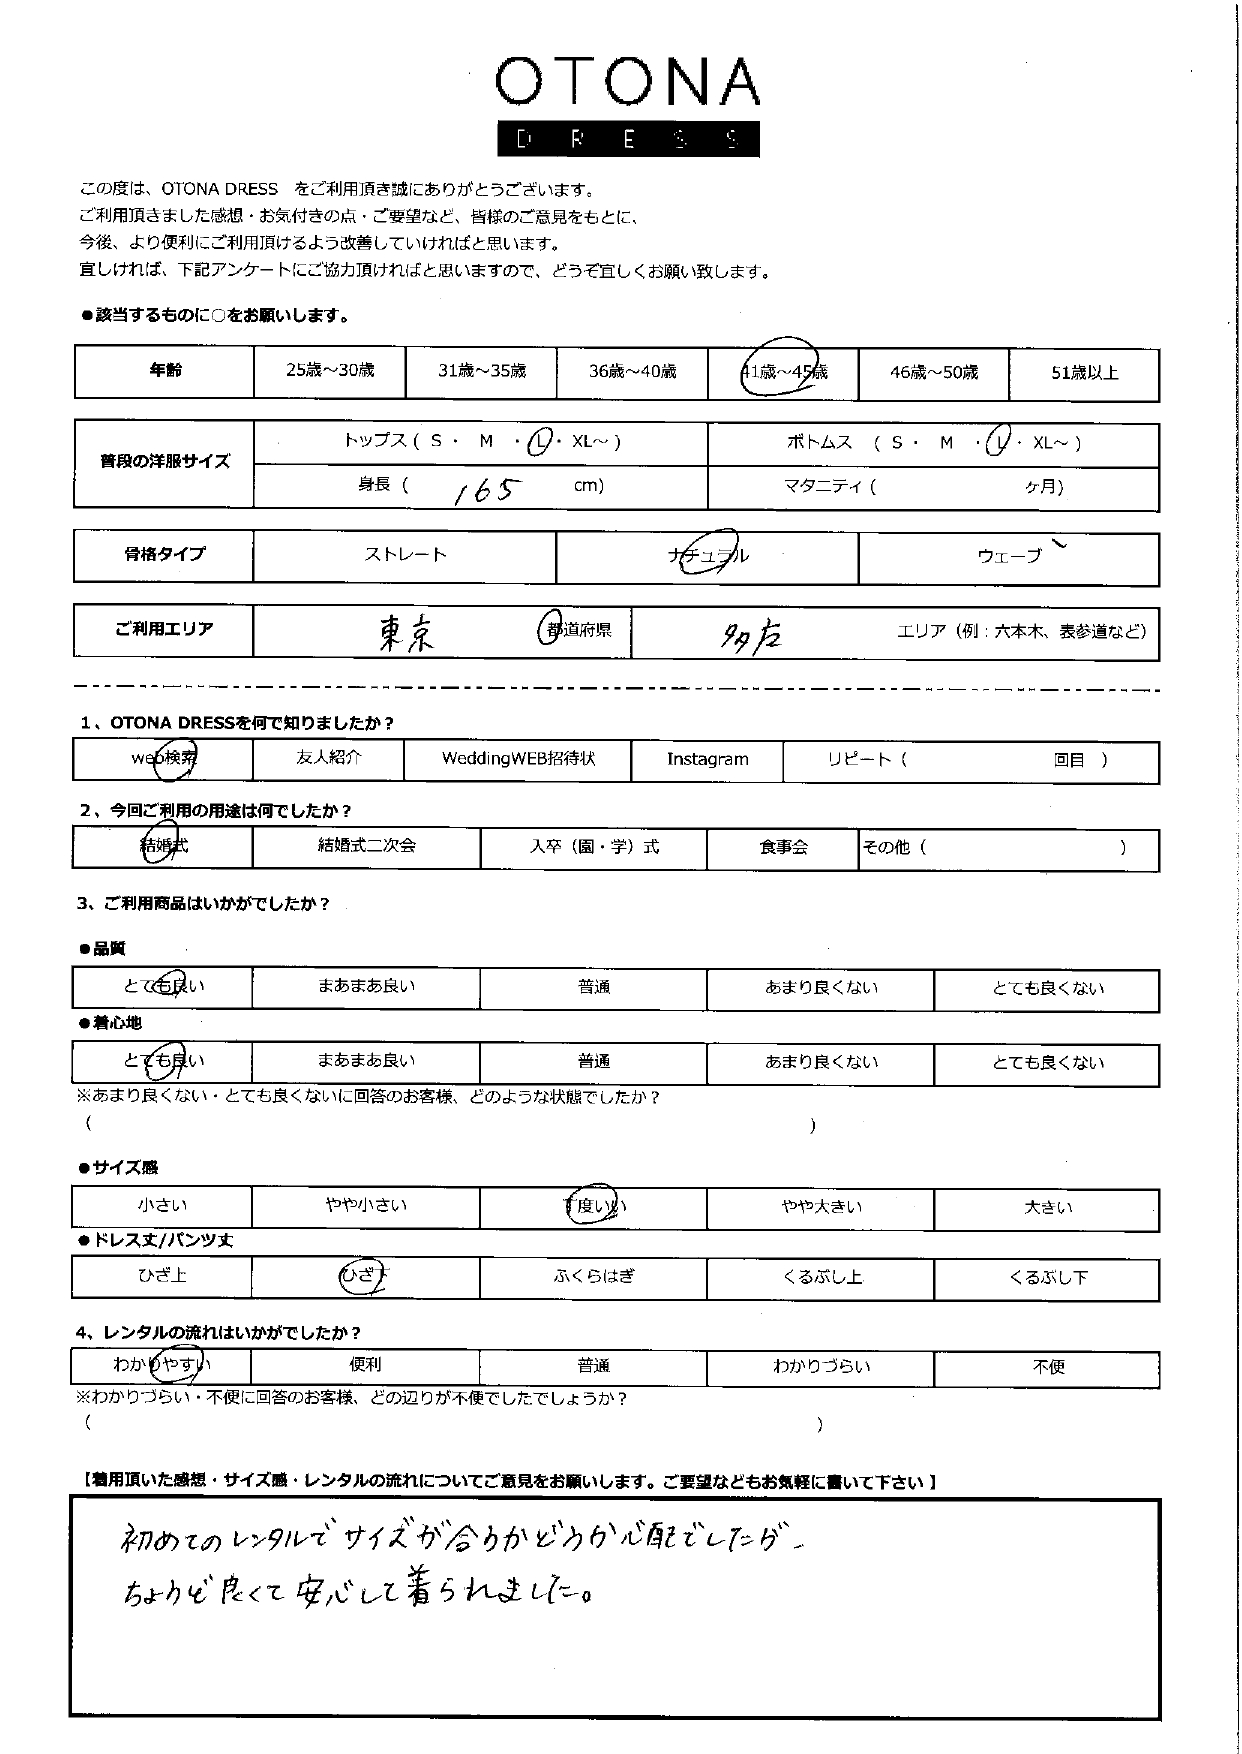 OTONA
DRESS
この度は、OTONA DRESS　をご利用頂き誠にありがとうございます。
ご利用頂きました感想・お気付きの点・ご要望など、皆様のご意見をもとに、
今後、より便利にご利用頂けるよう改善していければと思います。
宜しければ、下記アンケートにご協力頂ければと思いますので、どうぞ宜しくお願い致します。
●該当するものに○をお願いします。
年齢 25歳～30歳 31歳～35歳 36歳～40歳 41歳～45歳 46歳～50歳 51歳以上
普段の洋服サイズ トップス ( S ・ M ・ L ・ XL～ ) ボトムス ( S ・ M ・ L ・ XL～ )
身長 ( 165 cm) マタニティ ( ヶ月)
骨格タイプ ストレート ナチュラル ウェーブ
ご利用エリア 東京 都道府県 エリア（例：六本木、表参道など）
1、OTONA DRESSを何で知りましたか？
web検索 友人紹介 WeddingWEB招待状 Instagram リピート（ 回目 ）
2、今回ご利用の用途は何でしたか？
結婚式 結婚式二次会 入卒（園・学）式 食事会 その他（ ）
3、ご利用商品はいかがでしたか？
●品質
とても良い まあまあ良い 普通 あまり良くない とても良くない
●着心地
とても良い まあまあ良い 普通 あまり良くない とても良くない
※あまり良くない・とても良くないに回答のお客様、どのような状態でしたか？
（ ）
●サイズ感
小さい やや小さい 丁度いい やや大きい 大きい
●ドレス丈/パンツ丈
ひざ上 ひざ下 ふくらはぎ くるぶし上 くるぶし下
4、レンタルの流れはいかがでしたか？
わかりやすい 便利 普通 わかりづらい 不便
※わかりづらい・不便に回答のお客様、どの辺りが不便でしたでしょうか？
（ ）
【着用頂いた感想・サイズ感・レンタルの流れについてご意見をお願いします。ご要望などもお気軽に書いて下さい】
初めてのレンタルでサイズが合うかどうか心配でしたが、
ちょうど良くて安心して着られました。